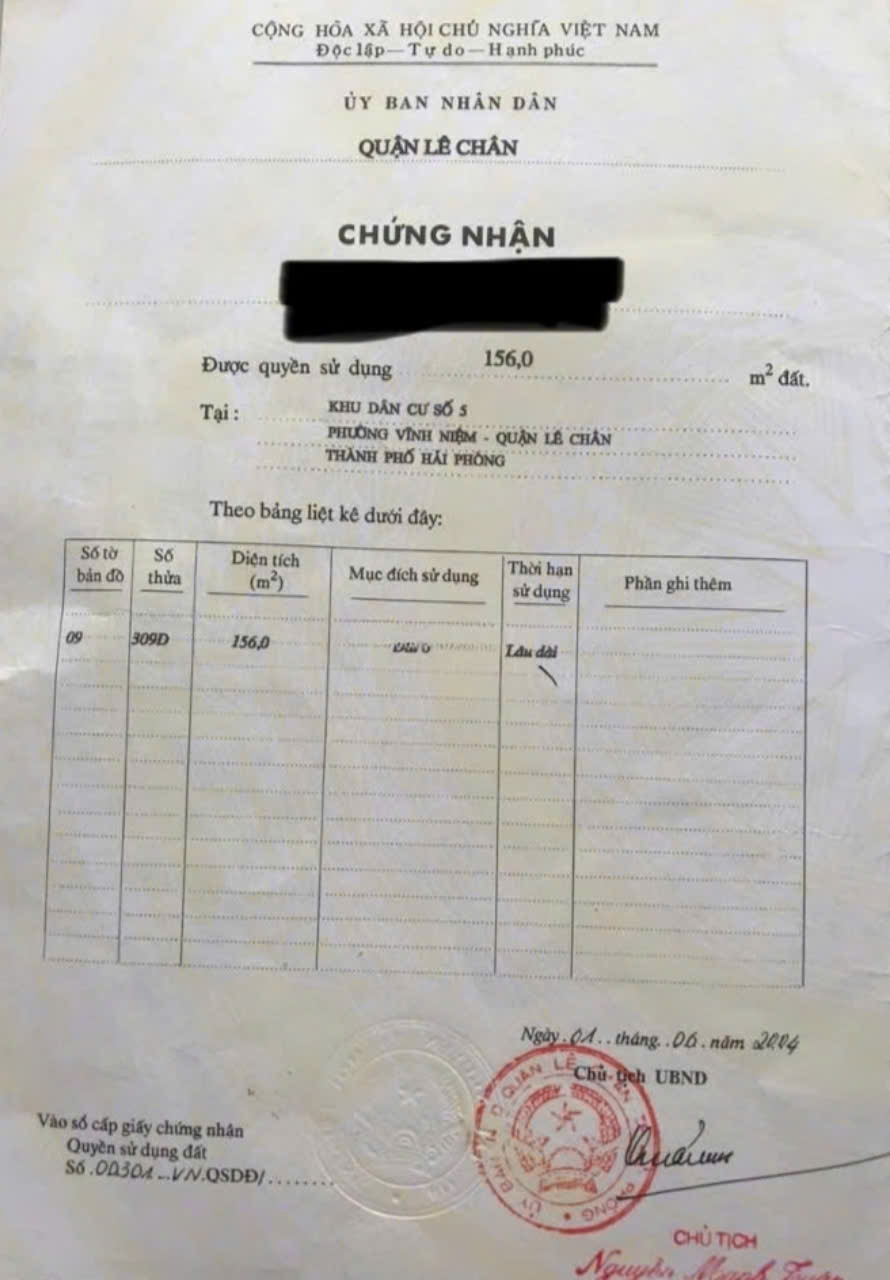 CỘNG HÒA XÃ HỘI CHỦ NGHĨA VIỆT NAM
Độc lập — Tự do — Hạnh phúc
ỦY BAN NHÂN DÂN
QUẬN LÊ CHÂN
CHỨNG NHẬN
Được quyền sử dụng 156,0 m² đất.
Tại : KHU DÂN CƯ SỐ 5
PHƯỜNG VĨNH NIỆM - QUẬN LÊ CHÂN
THÀNH PHỐ HẢI PHÒNG
Theo bảng liệt kê dưới đây:
Số tờ bản đồ
Số thửa
Diện tích (m²)
Mục đích sử dụng
Thời hạn sử dụng
Phần ghi thêm
09 309D 156,0 Lâu dài
Ngày 01 tháng 06 năm 2004
Chủ tịch UBND
Vào sổ cấp giấy chứng nhân
Quyền sử dụng đất
Số 00301 VN.QSDĐ/
QUẬN LÊ
CHỦ TỊCH
Nguyễn Mạnh